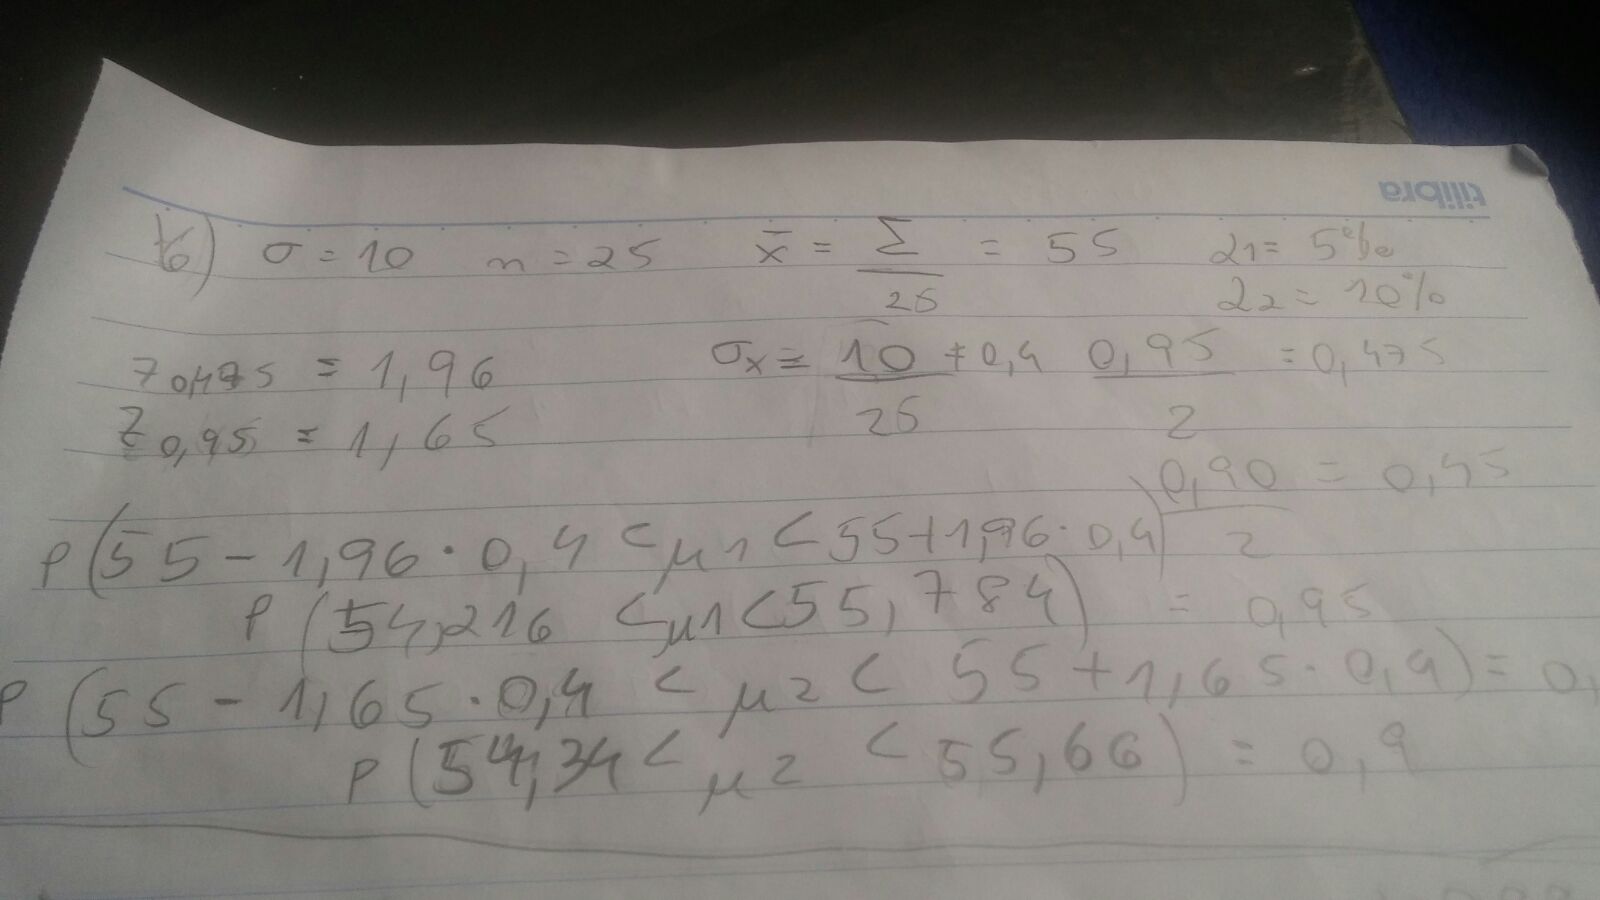 tilibra
b) σ = 10 n = 25 x̄ = Σ/25 = 55 α1 = 5%
α2 = 10%
z0,475 = 1,96 σx = 10/25 = 0,4 0,95/2 = 0,475
Z0,95 = 1,65
0,90/2 = 0,45
P(55 - 1,96 · 0,4 < μ1 < 55 + 1,96 · 0,4)
P(54,216 < μ1 < 55,784) = 0,95
P(55 - 1,65 · 0,4 < μ2 < 55 + 1,65 · 0,4) = 0,
P(54,34 < μ2 < 55,66) = 0,9